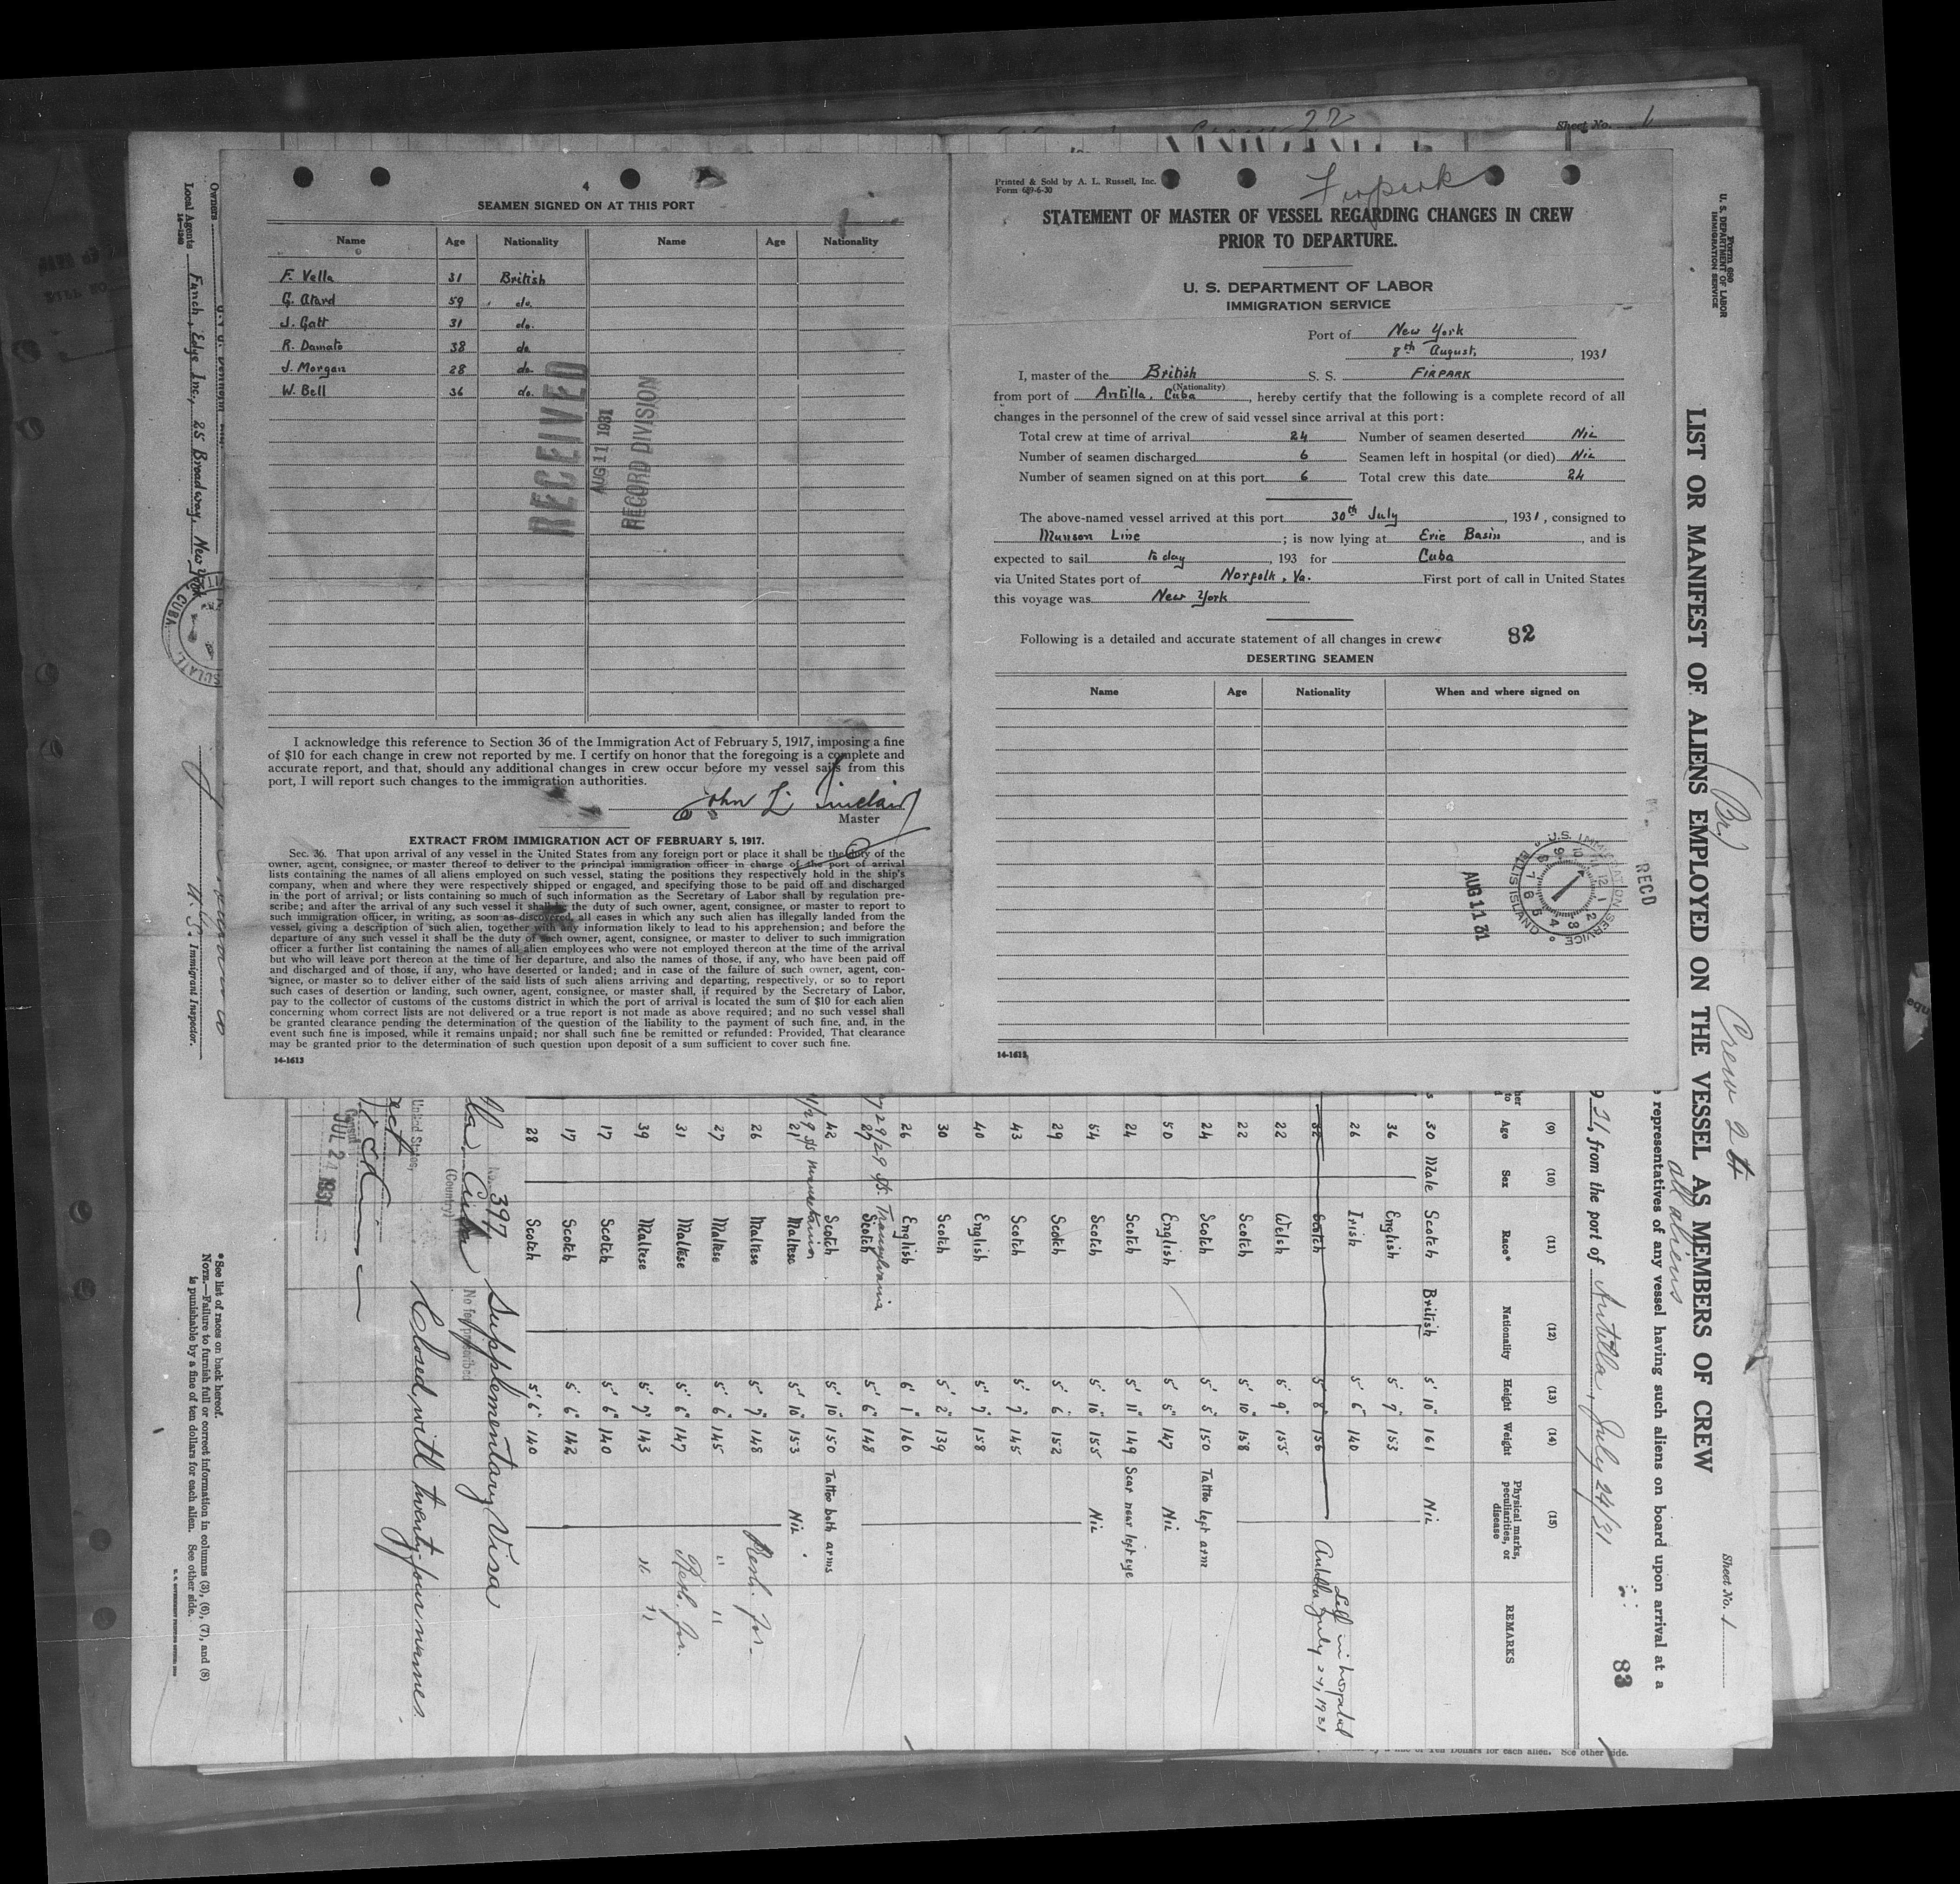 22
Sheet No. 6
4
SEAMEN SIGNED ON AT THIS PORT
Name Age Nationality Name Age Nationality
F. Vella 31 British
G. Atard 59 do.
J. Gatt 31 do.
R. Damato 38 do
J. Morgan 28 do.
W. Bell 36 do.
RECEIVED
AUG 11 1931
RECORD DIVISION
I acknowledge this reference to Section 36 of the Immigration Act of February 5, 1917, imposing a fine
of $10 for each change in crew not reported by me. I certify on honor that the foregoing is a complete and
accurate report, and that, should any additional changes in crew occur before my vessel sails from this
port, I will report such changes to the immigration authorities.
John L. Sinclair
Master
EXTRACT FROM IMMIGRATION ACT OF FEBRUARY 5, 1917.
Sec. 36. That upon arrival of any vessel in the United States from any foreign port or place it shall be the duty of the
owner, agent, consignee, or master thereof to deliver to the principal immigration officer in charge of the port of arrival
lists containing the names of all aliens employed on such vessel, stating the positions they respectively hold in the ship's
company, when and where they were respectively shipped or engaged, and specifying those to be paid off and discharged
in the port of arrival; or lists containing so much of such information as the Secretary of Labor shall by regulation pre-
scribe; and after the arrival of any such vessel it shall be the duty of such owner, agent, consignee, or master to report to
such immigration officer, in writing, as soon as discovered, all cases in which any such alien has illegally landed from the
vessel, giving a description of such alien, together with any information likely to lead to his apprehension; and before the
departure of any such vessel it shall be the duty of such owner, agent, consignee, or master to deliver to such immigration
officer a further list containing the names of all alien employees who were not employed thereon at the time of the arrival
but who will leave port thereon at the time of her departure, and also the names of those, if any, who have been paid off
and discharged and of those, if any, who have deserted or landed; and in case of the failure of such owner, agent, con-
signee, or master so to deliver either of the said lists of such aliens arriving and departing, respectively, or so to report
such cases of desertion or landing, such owner, agent, consignee, or master shall, if required by the Secretary of Labor,
pay to the collector of customs of the customs district in which the port of arrival is located the sum of $10 for each alien
concerning whom correct lists are not delivered or a true report is not made as above required; and no such vessel shall
be granted clearance pending the determination of the question of the liability to the payment of such fine, and, in the
event such fine is imposed, while it remains unpaid; nor shall such fine be remitted or refunded: Provided, That clearance
may be granted prior to the determination of such question upon deposit of a sum sufficient to cover such fine.
14-1613
Printed & Sold by A. L. Russell, Inc.
Form 689-6-30
Firpark
STATEMENT OF MASTER OF VESSEL REGARDING CHANGES IN CREW
PRIOR TO DEPARTURE.
U. S. DEPARTMENT OF LABOR
IMMIGRATION SERVICE
Port of New York
8th August, 1931
I, master of the British S. S. FIRPARK
(Nationality)
from port of Antilla, Cuba, hereby certify that the following is a complete record of all
changes in the personnel of the crew of said vessel since arrival at this port:
Total crew at time of arrival 24 Number of seamen deserted Nil
Number of seamen discharged 6 Seamen left in hospital (or died) Nil
Number of seamen signed on at this port 6 Total crew this date 24
The above-named vessel arrived at this port 30th July, 1931, consigned to
Munson Line; is now lying at Erie Basin, and is
expected to sail to day, 193 for Cuba
via United States port of Norfolk, Va. First port of call in United States
this voyage was New York
Following is a detailed and accurate statement of all changes in crew:
82
DESERTING SEAMEN
Name Age Nationality When and where signed on
U.S. IMMIGRATION SERVICE ELLIS ISLAND
AUG 11 31
REC'D
14-1613
Form 680
U. S. DEPARTMENT OF LABOR
IMMIGRATION SERVICE
LIST OR MANIFEST OF ALIENS EMPLOYED ON THE VESSEL AS MEMBERS OF CREW
(Br)
Crew 24
all aliens
Sheet No. 1
representatives of any vessel having such aliens on board upon arrival at a
31, from the port of Antilla, July 24/31
83
(9) (10) (11) (12) (13) (14) (15)
Age Sex Race* Nationality Height Weight Physical marks, peculiarities, or disease REMARKS
30 Male Scotch British 5' 10" 161 Nil
36 English 5' 7" 153
26 Irish 5' 6" 140
32 Scotch 5' 8" 156 Left in hospital Antilla July 24, 1931
22 Welsh 5' 9" 155
22 Scotch 5' 10" 158
24 Scotch 5' 5" 150 Tattoo left arm
50 English 5' 5" 147 Nil
24 Scotch 5' 11" 149 Scar near left eye
54 Scotch 5' 10" 155 Nil
29 Scotch 5' 6" 152
43 Scotch 5' 7" 145
40 English 5' 7" 158
30 Scotch 5' 2" 139
26 English 6' 1" 160
29/29 SS. Transylvania
27 Scotch 5' 6" 148
42 Scotch 5' 10" 150 Tattoo both arms
SS Mauretania
21 Maltese 5' 10" 153 Nil
26 Maltese 5' 7" 148
27 Maltese 5' 6" 145 " "
31 Maltese 5' 6" 147
39 Maltese 5' 7" 143 " "
17 Scotch 5' 6" 140
17 Scotch 5' 6" 142
28 Scotch 5' 6" 140
No. 397 Supplementary Visa
Cuba
(Country)
No fee prescribed
United States,
Closed, with twenty-four names.
Consul
JUL 24 1931
*See list of races on back hereof.
NOTE.—Failure to furnish full or correct information in columns (3), (6), (7), and (8)
is punishable by a fine of ten dollars for each alien. See other side.
Owners
Local Agents Funch, Edye Inc., 25 Broadway, New York
16—1240
CUBA
Immigrant Inspector.
of Ten Dollars for each alien. See other side.